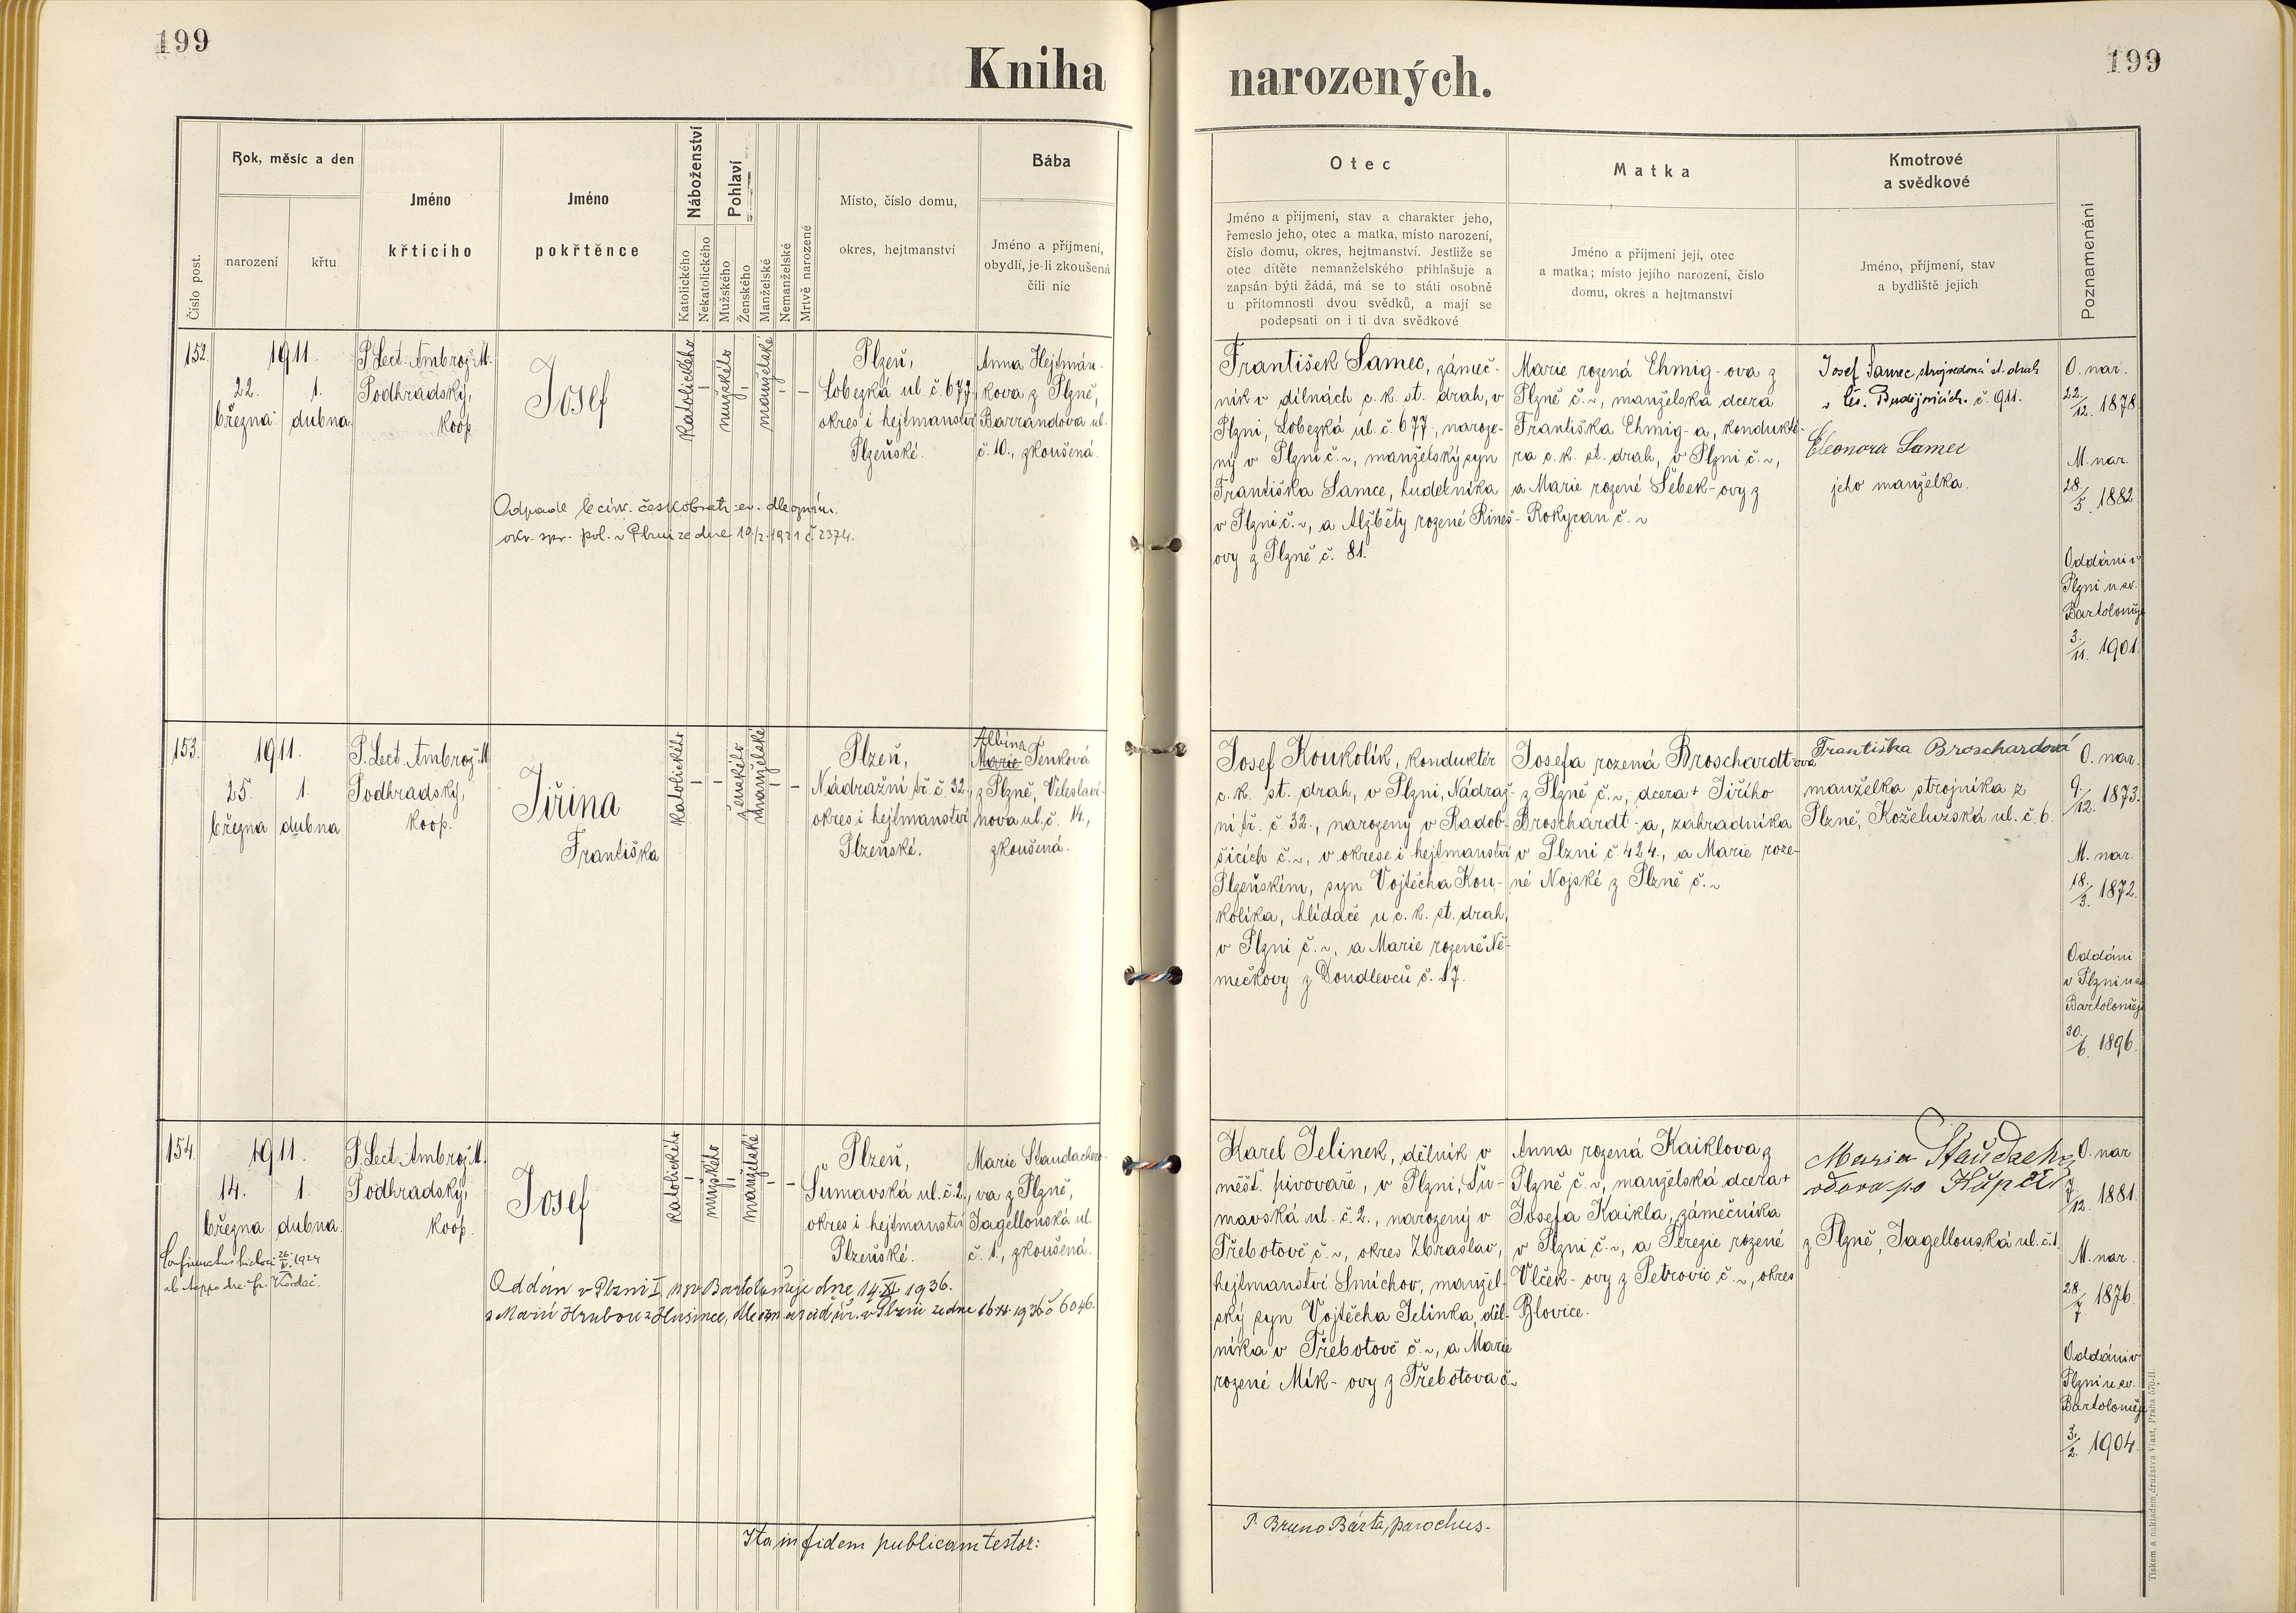 199
Kniha narozených.
199
Číslo post.
Rok, měsíc a den
narození
křtu
Jméno
křticího
Jméno
pokřtěnce
Náboženství
Katolického
Nekatolického
Pohlaví
Mužského
Ženského
Manželské
Nemanželské
Mrtvě narozené
Místo, číslo domu,
okres, hejtmanství
Bába
Jméno a příjmení,
obydlí, je-li zkoušená
čili nic
Otec
Jméno a příjmení, stav a charakter jeho,
řemeslo jeho, otec a matka, místo narození,
číslo domu, okres, hejtmanství. Jestliže se
otec dítěte nemanželského přihlašuje a
zapsán býti žádá, má se to státi osobně
u přítomnosti dvou svědků, a mají se
podepsati on i ti dva svědkové
Matka
Jméno a příjmení její, otec
a matka; místo jejího narození, číslo
domu, okres a hejtmanství
Kmotrové
a svědkové
Jméno, příjmení, stav
a bydliště jejich
Poznamenání
152.
1911.
22.
března
1.
dubna
P. Lect. Ambrož M.
Podhradský,
koop.
Josef
katolického
mužského
manželské
Plzeň,
Lobezká ul. č. 677,
okres i hejtmanství
Plzeňské.
Anna Hejtmán-
kova z Plzně,
Barrandova ul.
č. 10., zkoušená.
okr. spr. pol. v Plzni ze dne 10/2. 1921 č. 2374.
František Samec, zámeč-
ník v dílnách c. k. st. drah, v
Plzni, Lobezká ul. č. 677., naroze-
ný v Plzni č. ~, manželský syn
Františka Samce, hudebníka
v Plzni č. ~, a Alžběty rozené Rineš-
ovy z Plzně č. 81.
Marie rozená Ehmig-ova z
Plzně č. ~, manželská dcera
Františka Ehmig-a, kondukté-
ra c. k. st. drah, v Plzni č. ~,
a Marie rozené Šebek-ovy z
Rokycan č. ~
Josef Samec, strojvedoucí st. drah
v Čes. Budějovicích č. 911.
Eleonora Samec
jeho manželka.
O. nar.
22./12. 1878.
M. nar.
28./5. 1882.
Oddáni v
Plzni u sv.
Bartoloměje
3./11. 1901.
153.
1911.
25.
března
1.
dubna
P. Lect. Ambrož M.
Podhradský,
koop.
Jiřina
Františka
katolického
ženského
manželské
Plzeň,
Nádražní tř. č. 32.,
okres i hejtmanství
Plzeňské.
Albina
Marie Tenková
z Plzně, Veleslaví-
nova ul. č. 14.,
zkoušená.
Josef Koukolík, konduktér
c. k. st. drah, v Plzni, Nádraž-
ní tř. č. 32., narozený v Radob-
šicích č. ~, v okrese i hejtmanství
Plzeňském, syn Vojtěcha Kou-
kolíka, hlídače u c. k. st. drah,
v Plzni č. ~, a Marie rozené Ně-
mečkovy z Doudlevců č. 17.
Josefa rozená Broschardt-ova
z Plzně č. ~, dcera + Jiřího
Broschardt-a, zahradníka
v Plzni č. 424., a Marie roze-
né Nojské z Plzně č. ~
Františka Broschardová
manželka strojníka z
Plzně, Koželuzská ul. č. 6.
O. nar.
9./12. 1873.
M. nar.
18./3. 1872.
Oddáni
v Plzni u sv.
Bartoloměje
30./6. 1896.
154.
1911.
14.
března
1.
dubna.
P. Lect. Ambrož M.
Podhradský,
koop.
Josef
katolického
mužského
manželské
Plzeň,
Šumavská ul. č. 2.,
okres i hejtmanství
Plzeňské.
Marie Staudachero-
va z Plzně,
Jagellonská ul.
č. 1., zkoušená.
Oddán v Plzni I u sv. Bartoloměje dne 14. XI 1936.
s Marií Hrubou z Husince, dle ozn. ze dne 16. XI. 1936 č. 6046.
Karel Jelinek, dělník v
měšť. pivovaře, v Plzni, Šu-
mavská ul. č. 2., narozený v
Třebotově č. ~, okres Zbraslav,
hejtmanství Smíchov, manžel-
ský syn Vojtěcha Jelinka, děl-
níka v Třebotově č. ~, a Marie
rozené Mík-ovy z Třebotova č. ~
Anna rozená Kaiklova z
Plzně č. ~, manželská dcera +
Josefa Kaikla, zámečníka
v Plzni č. ~, a Terezie rozené
Vlček-ovy z Petrovic č. ~, okres
Blovice.
z Plzně, Jagellonská ul. č. 1.
O. nar.
7./12. 1881.
M. nar.
28./7. 1876.
Oddáni v
Plzni u sv.
Bartoloměje
3./2. 1904.
Ita in fidem publicam testor:
P. Bruno Bárta, parochus.
Tiskem a nákladem družstva Vlast, Praha 570-II.